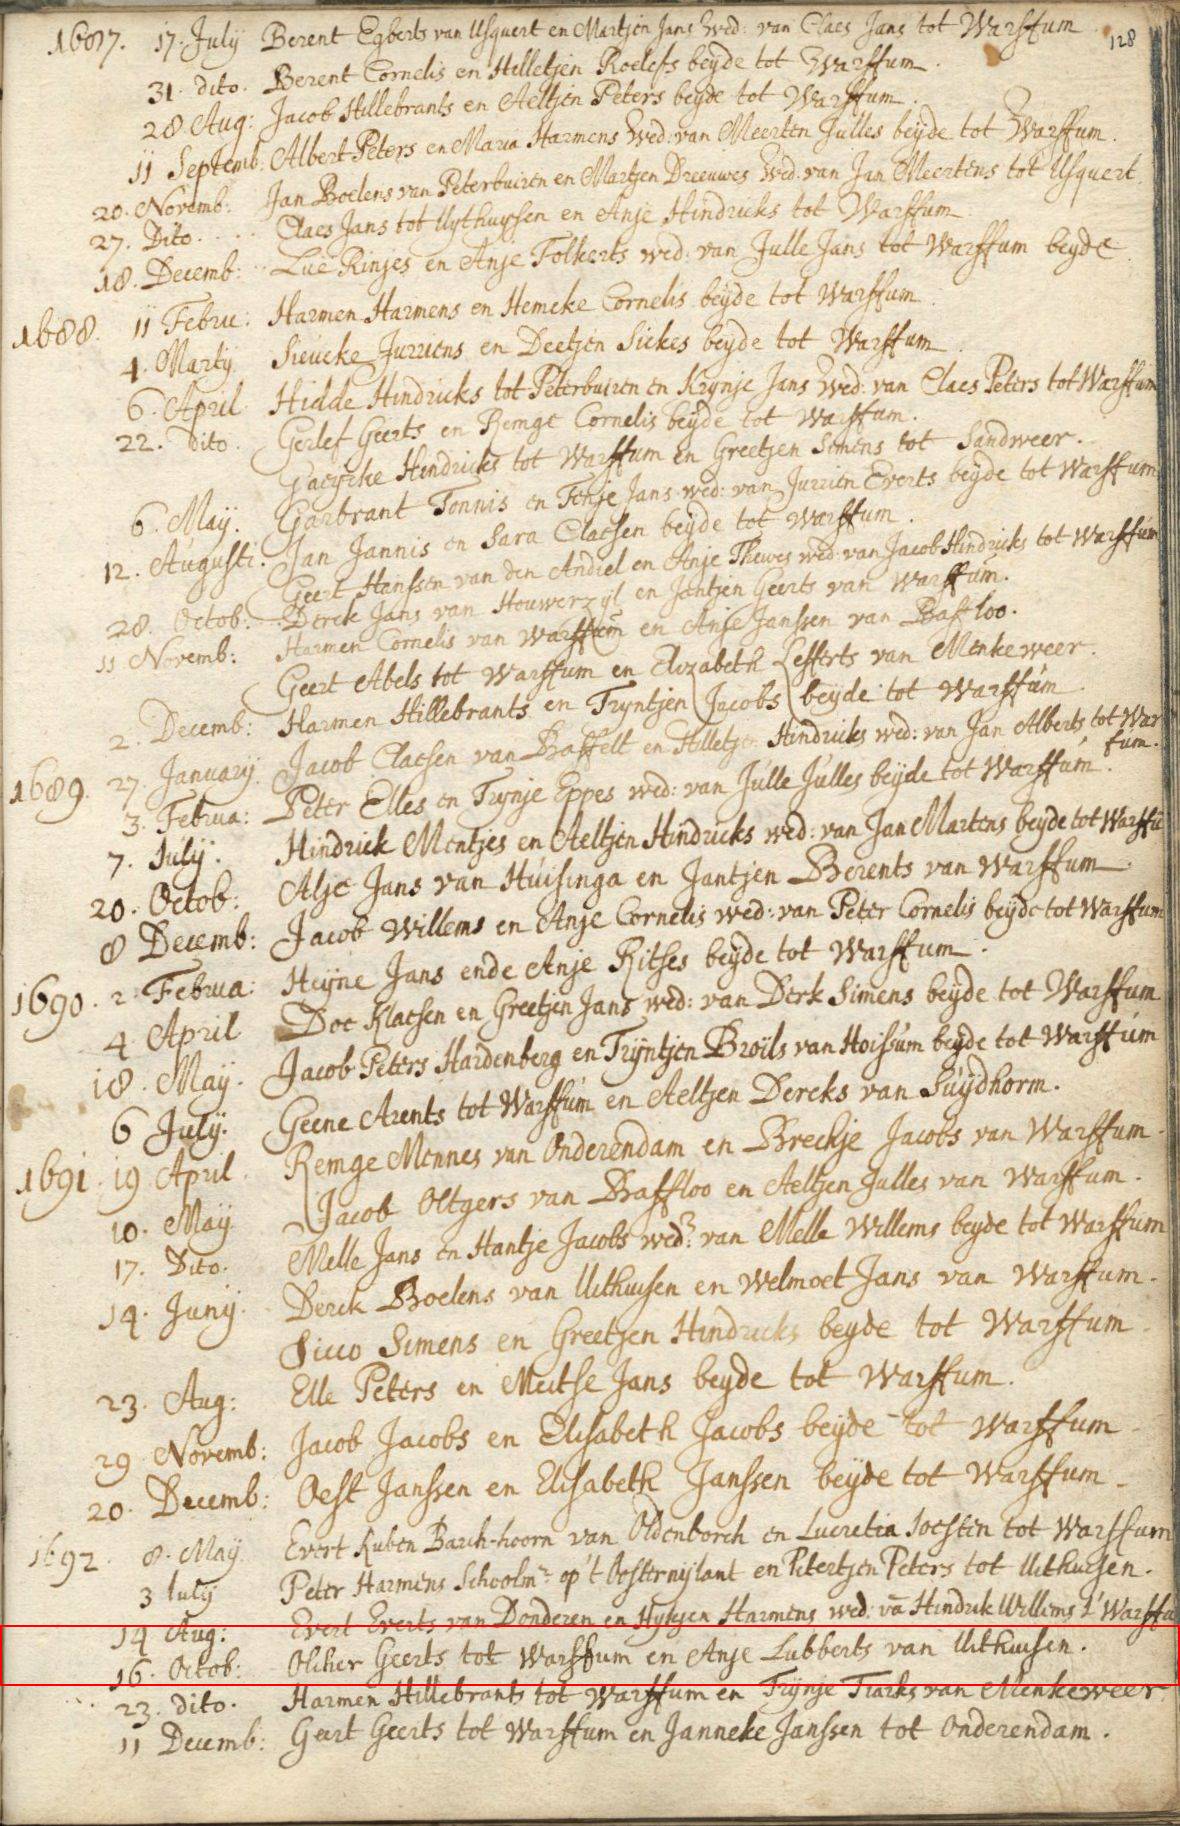 128
1687. 17. July Berent Egberts van Usquert en Martjen Jans Wed: van Claes Jans tot Warffum
31. dito. Berent Cornelis en Hilletjen Roelefs beyde tot Warffum.
28 Aug: Jacob Hillebrants en Aeltjen Peters beyde tot Warffum.
11 Septemb: Albert Peters en Maria Harmens Wed: van Meerten Julles beyde tot Warffum.
20. Novemb: Jan Boelens van Peterbuiren en Martjen Dreeuwes Wed: van Jan Meertens tot Usquert.
27. Dito. Claes Jans tot Uythuysen en Anje Hindricks tot Warffum
18. Decemb: Lue Rinjes en Anje Folkerts wed: van Julle Jans tot Warffum beyde.
1688. 11 Febru: Harmen Harmens en Hemcke Cornelis beyde tot Warffum.
4. Martij Sieucke Jurriens en Deetjen Sickes beyde tot Warffum.
6. April Hidde Hindricks tot Peterbuiren en Krynje Jans Wed: van Claes Peters tot Warffum
22. dito. Gerlef Geerts en Remge Cornelis beyde tot Warffum.
Hendricks tot Warffum en Greetjen Simens tot Sandweer.
6. May. Garbrant Tonnis en Fenje Jans wed: van Jurrien Everts beyde tot Warffum
12. Augusti. Jan Jannis en Sara Claesen beyde tot Warffum.
Geert Hanssen van den Andel en Anje Thewes wed: van Jacob Hindricks tot Warffum
28. Octob: Derck Jans van Houwerzijl en Jantjen Geerts van Warffum.
11 Novemb: Harmen Cornelis van Warffum en Anje Janssen van Baffloo.
Geert Abels tot Warffum en Elizabeth Lefferts van Menkeweer.
2. Decemb: Harmen Hillebrants en Tryntjen Jacobs beyde tot Warffum
1689. 27. January. Jacob Claesen van Raffelt en Hilletjen Hindricks wed: van Jan Alberts tot War
fum.
3. Februa: Peter Elles en Trynje Eppes wed: van Julle Julles beyde tot Warffum.
7. July. Hindrick Mentjes en Aeltjen Hindricks wed: van Jan Martens beyde tot Warffū
20. Octob: Alje Jans van Huisinga en Jantjen Berents van Warffum.
8 Decemb: Jacob Willems en Anje Cornelis wed: van Peter Cornelis beyde tot Warffum
1690. 2. Februa: Heyne Jans ende Anje Ritses beyde tot Warffum.
4 April Doe Klaesen en Greetjen Jans wed: van Derk Simens beyde tot Warffum
18. May. Jacob Peters Hardenberg en Tryntjen Broils van Hoissum beyde tot Warffum
6 July. Geene Arents tot Warffum en Aeltjen Dercks van Suydhorm.
1691. 19 April Remge Mennes van Onderendam en Breckje Jacobs van Warffum.
10. May Jacob Oltgers van Baffloo en Aeltjen Julles van Warffum.
17. Dito. Melle Jans en Hantje Jacobs wed: van Melle Willems beyde tot Warffum
14. Juny. Derck Boelens van Uithuisen en Welmoet Jans van Warffum.
Sicco Simens en Greetjen Hindricks beyde tot Warffum.
23. Aug: Elle Peters en Meitse Jans beyde tot Warffum.
29 Novemb: Jacob Jacobs en Elisabeth Jacobs beyde tot Warffum.
20. Decemb: Oest Janssen en Elisabeth Janssen beyde tot Warffum.
1692. 8. May Evert Ruben Barch-hoorn van Oldenborch en Lucretia Joesten tot Warffum
3 July Peter Harmens Schoolmr: op't Oosternijlant en Petertjen Peters tot Uithuisen.
14 Aug: Evert Everts van Donderen en Hykjen Harmens wed: vā Hindrik Willems t' Warffu
16. Octob: Olcher Geerts tot Warffum en Anje Lubberts van Uithuisen.
23. dito. Harmen Hillebrants tot Warffum en Trynje Tiarks van Menkeweer.
11 Decemb: Geert Geerts tot Warffum en Janneke Janssen tot Onderendam.